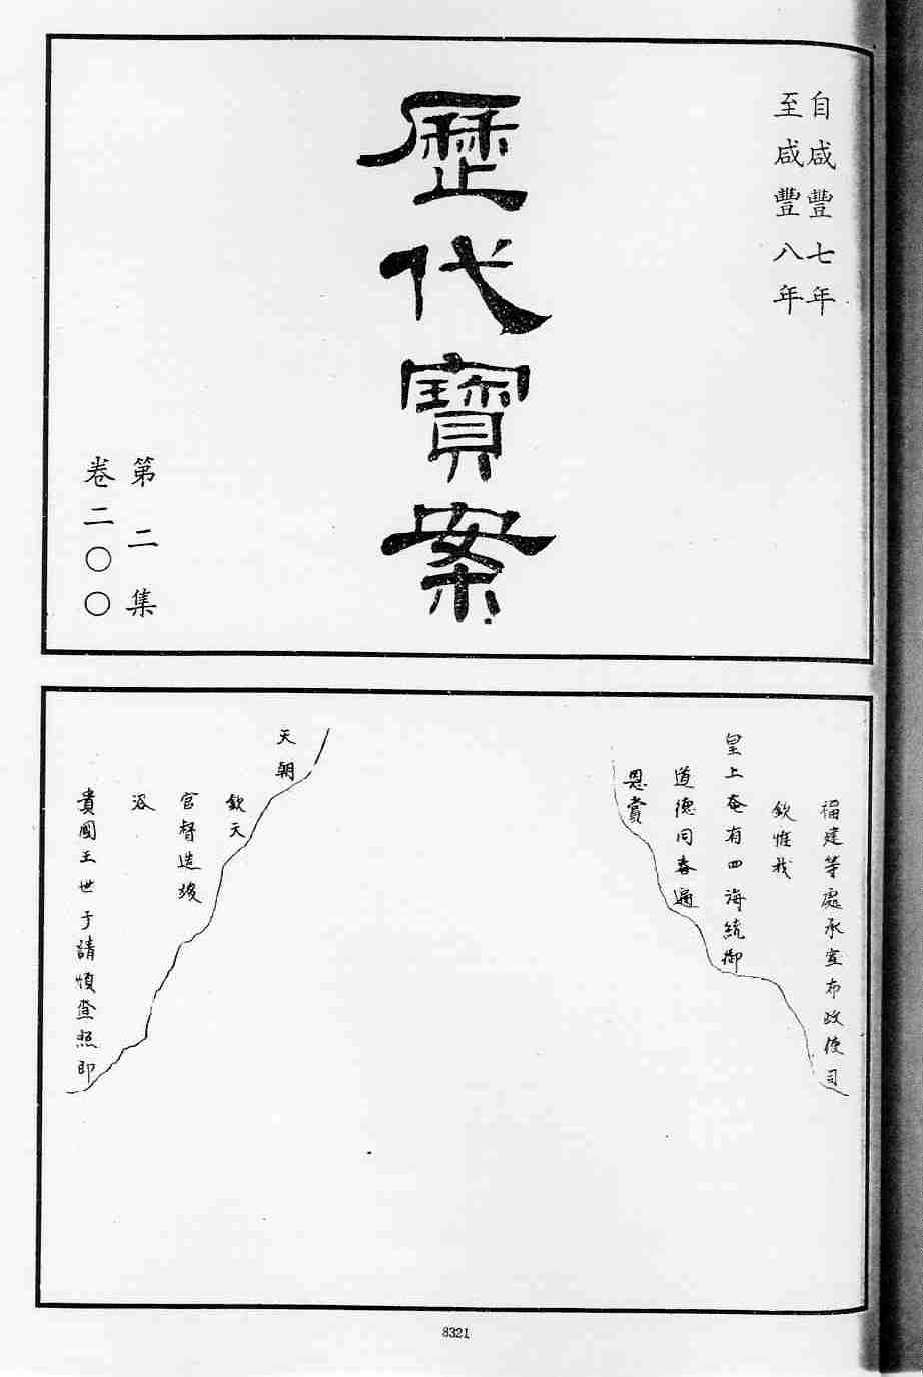 自咸豐七年
至咸豐八年
歷代寶案
第二集
卷二〇〇
福建等處承宣布政使司
欽惟我
皇上奄有四海統御
道德同春遍
恩賞
天朝
欽天
官督造竣
咨
貴國王世子請煩查照即
8321